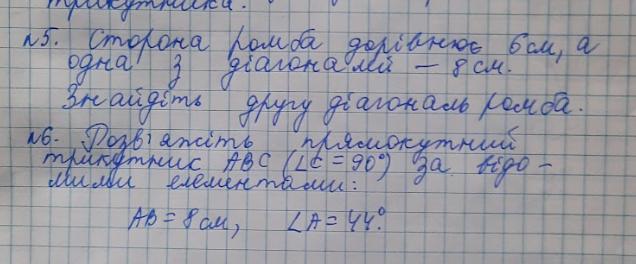 трикутника.
№5. Сторона ромба дорівнює 6 см, а
одна з діагоналей – 8 см.
Знайдіть другу діагональ ромба.
№6. Розв'яжіть прямокутний
трикутник ABC (∠C = 90°) за відо-
мими елементами:
AB = 8 см, ∠A = 44°.